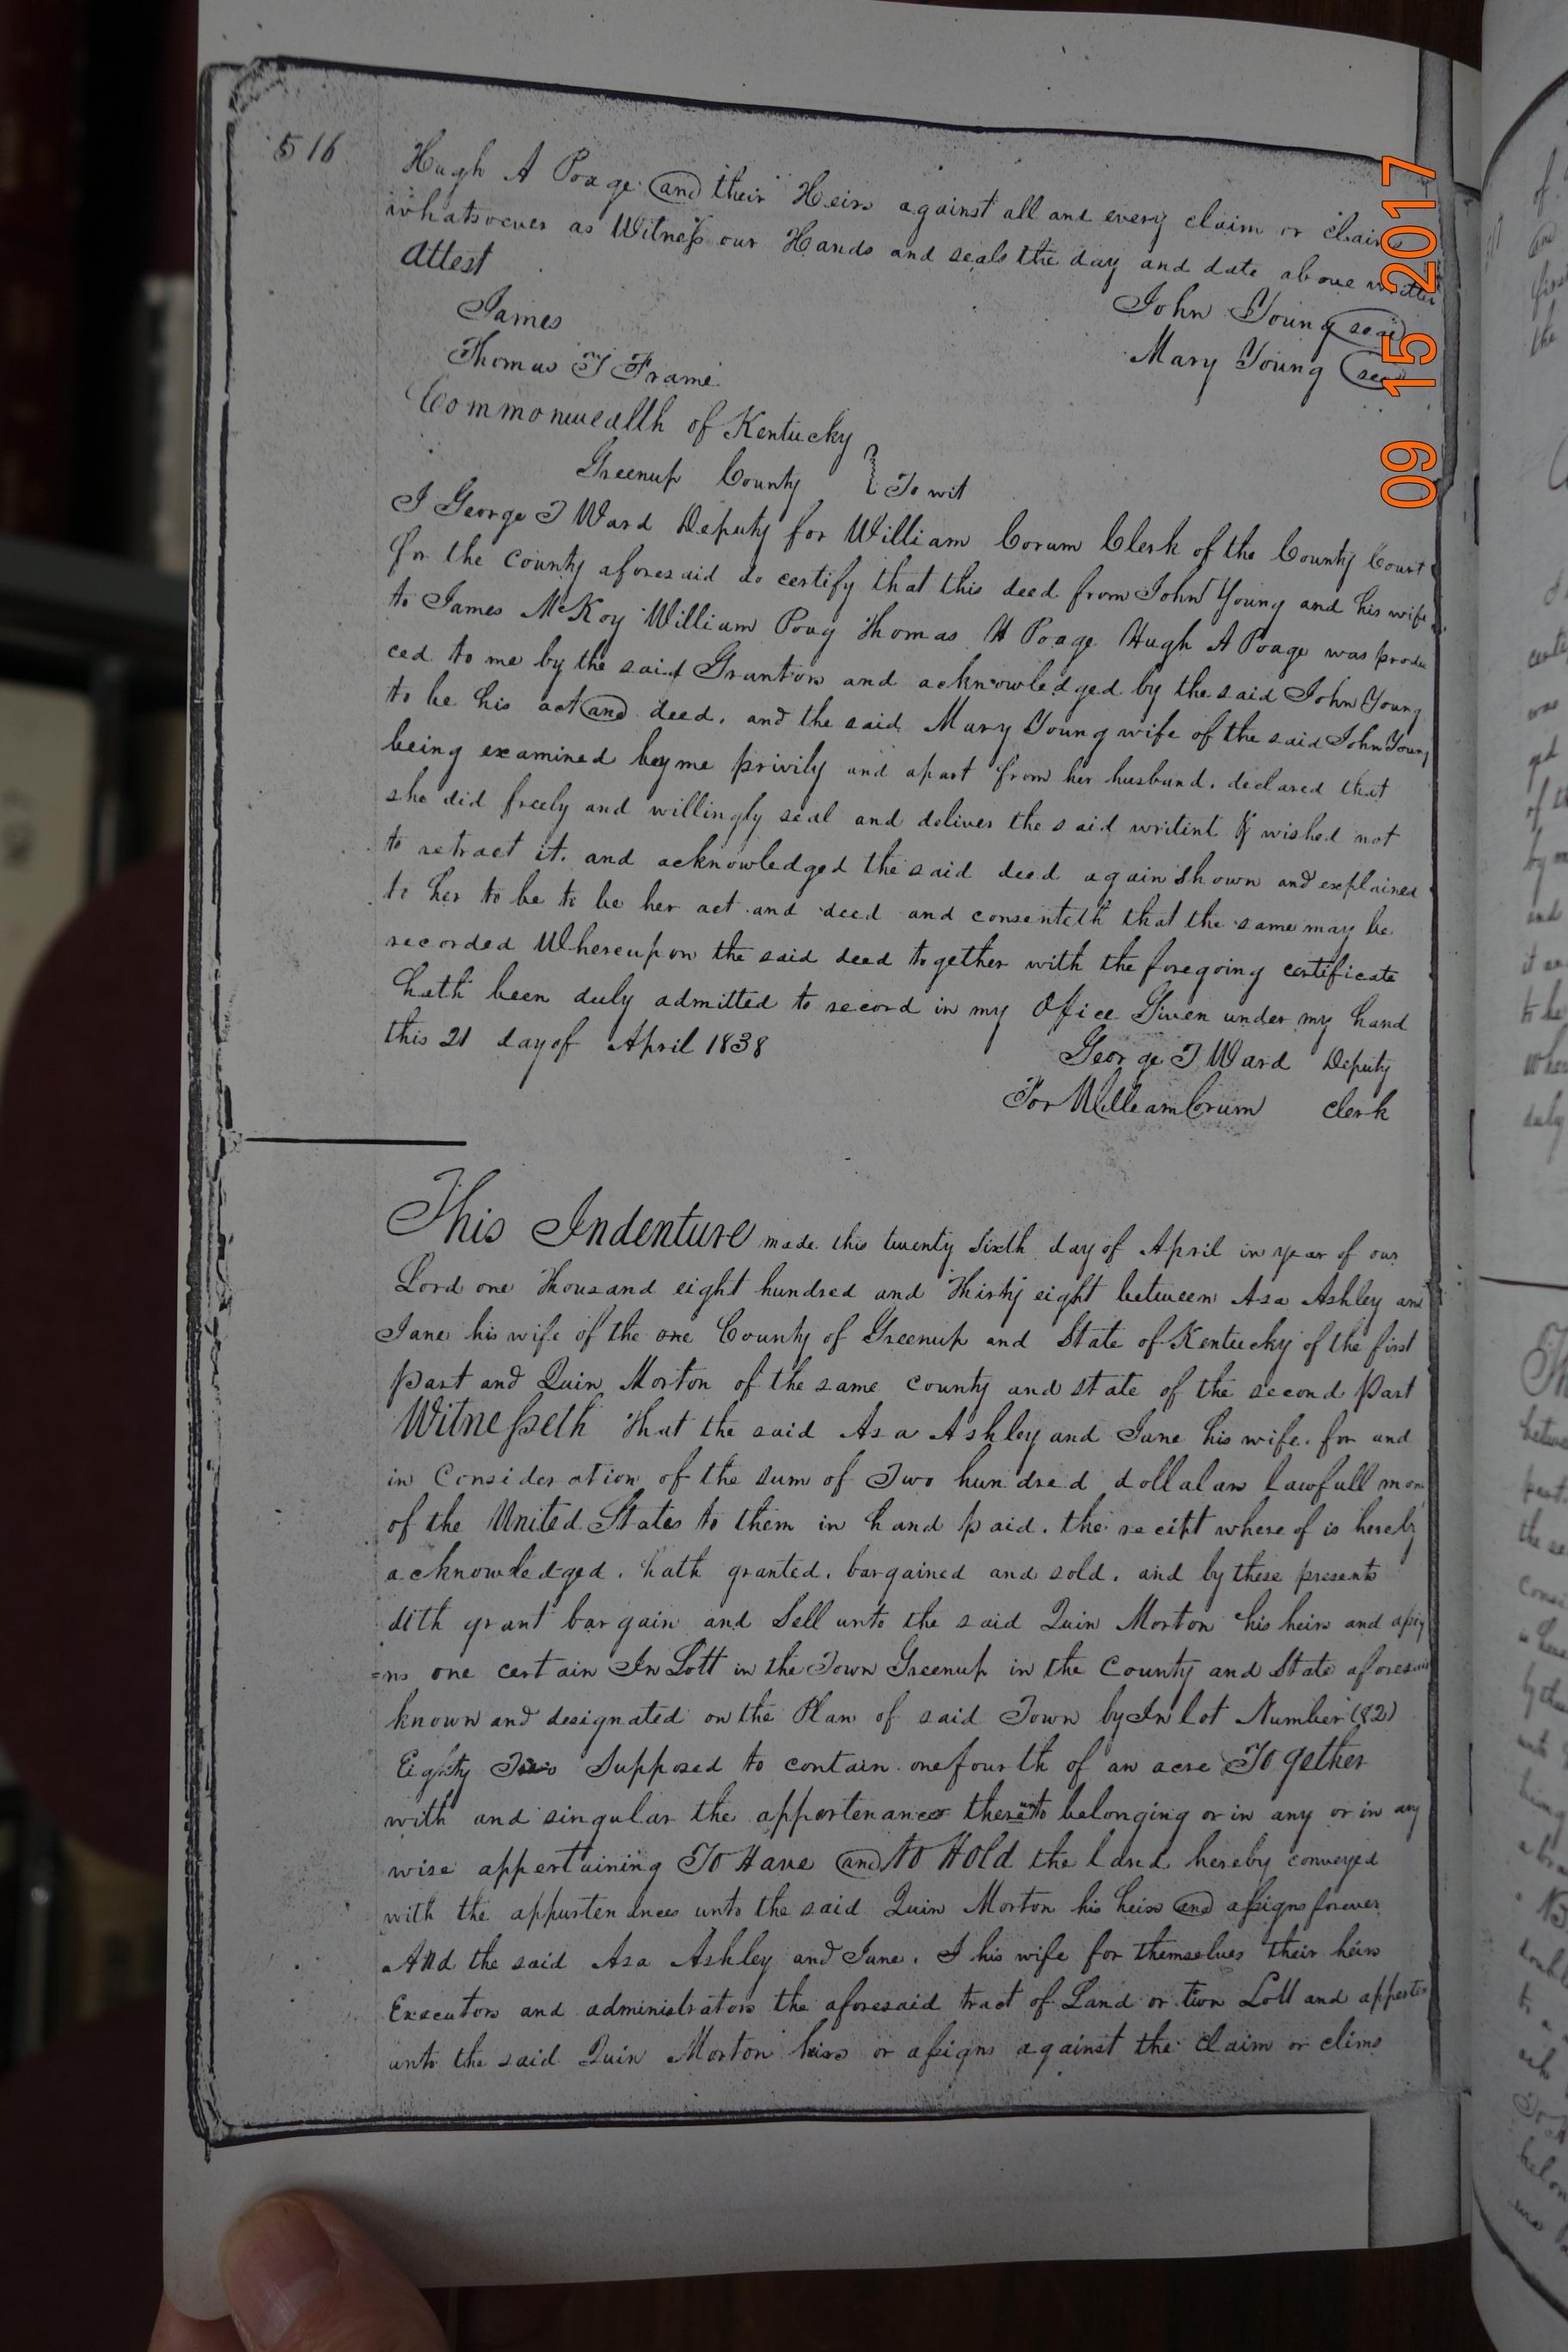 516
Hugh A Poage and their Heirs against all and every claim or claims
whatsoever as Witness our Hands and seals the day and date above written
Attest
John Young seal
James
Mary Young seal
Thomas T Frame
Commonwealth of Kentucky
Greenup County } To wit
I George T Ward Deputy for William Corum Clerk of the County Court
for the county aforesaid do certify that this deed from John Young and his wife
to James McKoy William Poag Thomas H Poage Hugh A Poage was produ
ced to me by the said Grantors and acknowledged by the said John Young
to be his act and deed. and the said Mary Young wife of the said John Young
being examined by me privily and apart from her husband. declared that
she did freely and willingly seal and deliver the said writint & wished not
to retract it. and acknowledged the said deed again shown and explained
to her to be to be her act and deed and consenteth that the same may be
recorded Whereupon the said deed together with the foregoing certificate
hath been duly admitted to record in my Office Given under my hand
this 21 day of April 1838
George T Ward Deputy
For William Crum Clerk
This Indenture made this twenty sixth day of April in year of our
Lord one Thousand eight hundred and Thirty eight between Asa Ashley and
Jane his wife of the one County of Greenup and State of Kentucky of the first
part and Quin Morton of the same county and state of the second Part
Witnesseth That the said Asa Ashley and Jane his wife. for and
in Consideration of the sum of Two hundred dollalars lawfull mon
of the United States to them in hand paid. the receipt whereof is hereby
acknowledged. hath granted. bargained and sold. and by these presents
dith grant bargain and Sell unto the said Quin Morton his heirs and assig
=ns one certain In Lott in the Town Greenup in the County and State aforesaid
known and designated on the Plan of said Town by In lot Number (82)
Eighty Two Supposed to contain one fourth of an acre Together
with and singular the appertenances thereunto belonging or in any or in any
wise appertaining To Have and to Hold the land hereby conveyed
with the appurtenances unto the said Quin Morton his heirs and assigns forever
And the said Asa Ashley and Jane. I his wife for themselves their heirs
Executors and administrators the aforesaid tract of Land or Lott and apperte
unto the said Quin Morton heirs or assigns against the claim or clims
09 15 2017